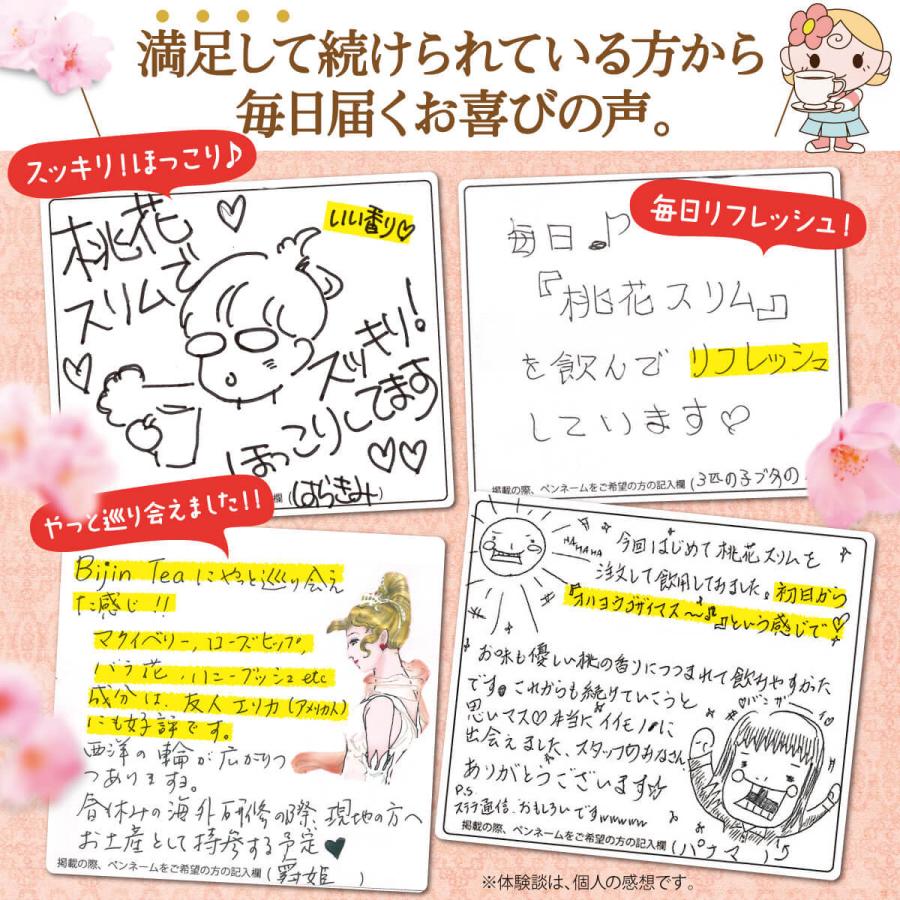 満足して続けられている方から
毎日届くお喜びの声。
スッキリ!ほっこり♪
桃花
スリムで
いい香り♡
スッキリ!
ほっこりしてます
掲載の際、ペンネームをご希望の方の記入欄(はらきみ)
毎日リフレッシュ!
毎日♪
『桃花スリム』
を飲んで リフレッシュ
しています♡
掲載の際、ペンネームをご希望の方の記入欄(3匹の子ブタの
やっと巡り会えました!!
Bijin Teaにやっと巡り会え
た感じ!!
マクイベリー,ローズヒップ,
バラ花,ハニーブッシュetc
成分は、友人エリカ(アメリカ人)
にも好評です。
西洋の輪が広がりつ
つありますね。
春休みの海外研修の際、現地の方へ
お土産として持参する予定♥
掲載の際、ペンネームをご希望の方の記入欄(姫)
HAHAHA
今回はじめて桃花スリムを
注文して飲用してみました。初日から
『オハヨウゴザイマス〜♪』という感じで♡
お味も優しい桃の香りにつつまれて飲みやすかった
です。これからも続けていこうと
思いマス♡本当にイイモノに
出会えました、スタッフのみなさん
ありがとうございます☆
P.S.
ステラ通信、おもしろいですwwwww
掲載の際、ペンネームをご希望の方の記入欄(パナマ)
※体験談は、個人の感想です。